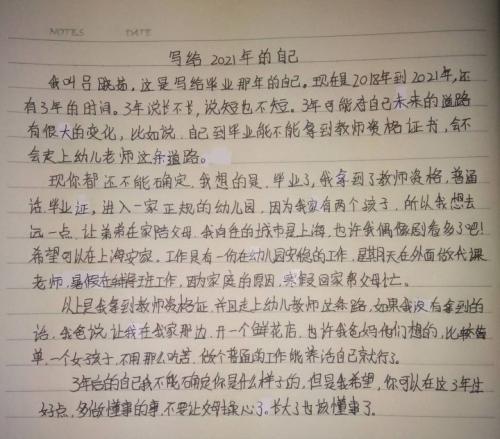 NOTES DATE
写给 2021年的自己
我叫吕晓茹，这是写给毕业那年的自己。现在是2018年到2021年，还
有3年的时间。3年说长不长，说短也不短。3年可能对自己未来的道路
有很大的变化，比如说，自己到毕业能不能拿到教师资格证书，会不
会走上幼儿老师这条道路。
现你都还不能确定，我想的是，毕业了，我拿到了教师资格，普通
话，毕业证，进入一家正规的幼儿园，因为我家有两个孩子，所以我想去
远一点，让弟弟在家陪父母，我向往的城市是上海，也许我偶像剧看多了吧！
希望可以在上海安家。工作只有一份在幼儿园安稳的工作，星期天在外面做代课
老师，暑假在辅导班工作，因为家庭的原因，寒假回家帮父母忙。
以上是我拿到教师资格证，并且走上幼儿教师这条路，如果我没有拿到的
话，我爸说，让我在我家那边，开一个鲜花店，也许我爸妈他们想的，比较简
单，一个女孩子，不用那么吃苦，做个普通的工作能养活自己就行了。
3年后的自己我不能确定你是什么样子的，但是我希望，你可以在这3年里
好点，多做懂事的事，不要让父母操心了。长大了也该懂事了。